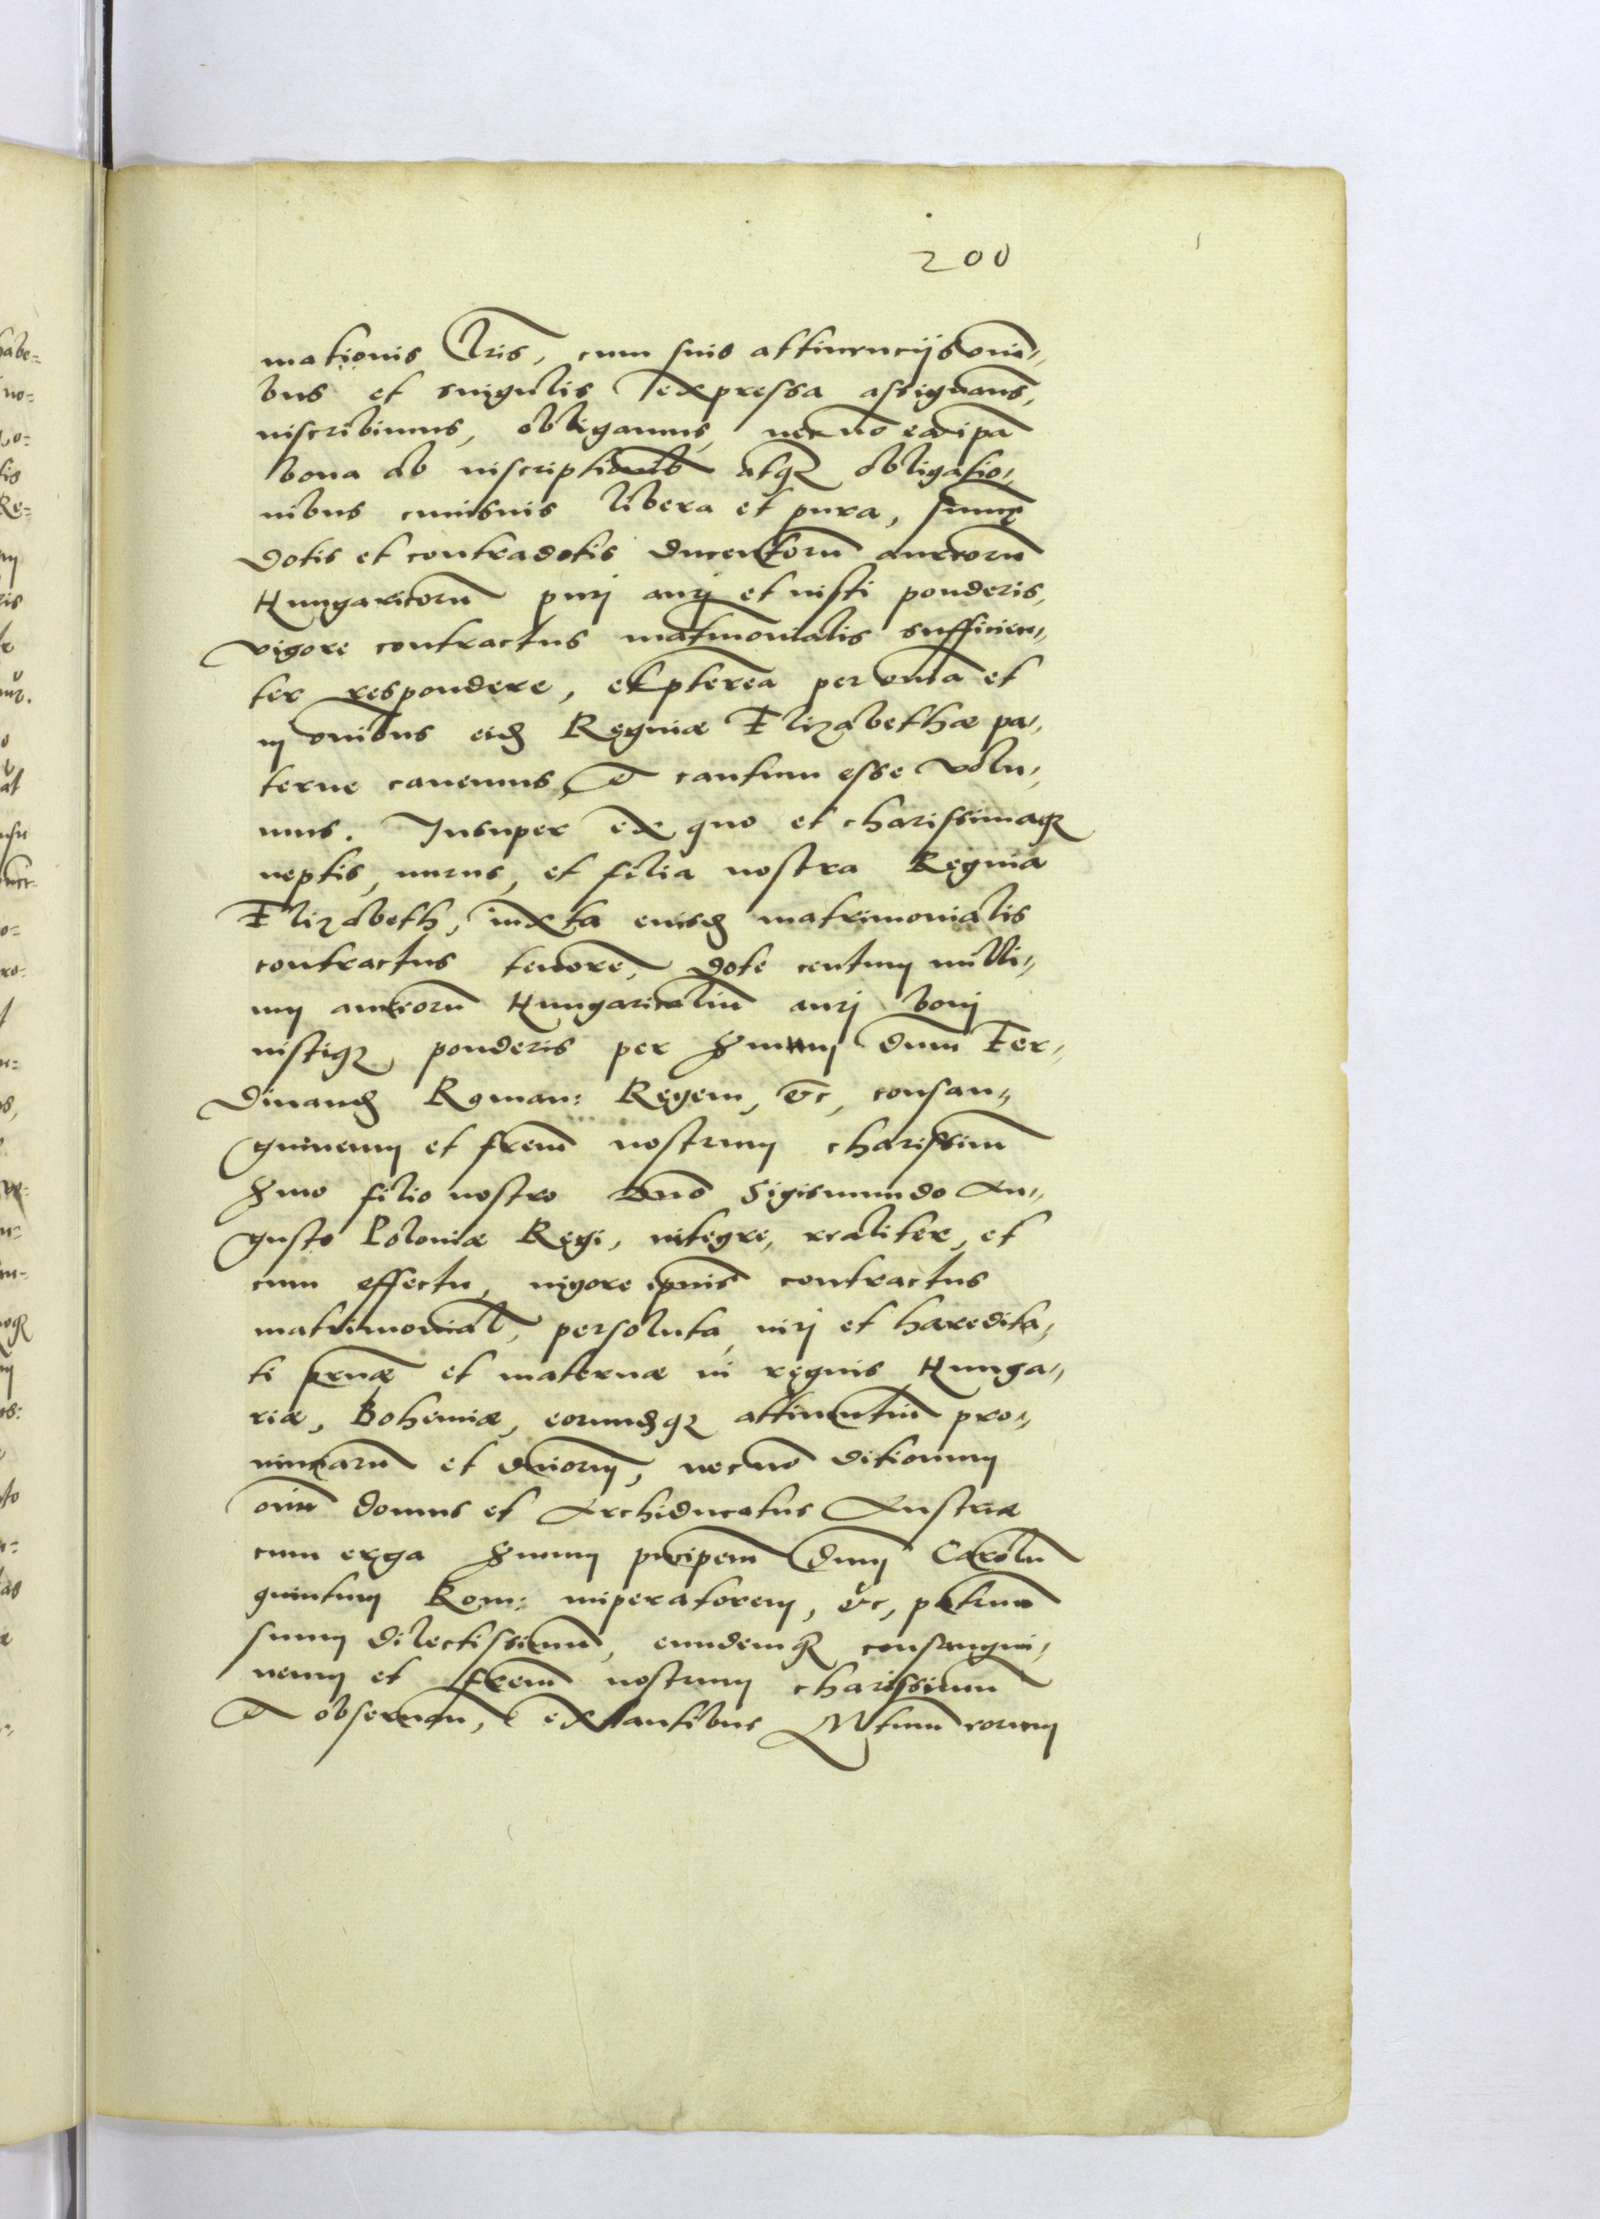 200
mationis Lris, cum suis attinencijs om̄i=
bus et singulis expressa assignam̄s,
inscribimus, obligamus, nec nō eadi ipā
bona ab inscriptionib atq̄ obligatio=
nibus cuiusuis libera et pura, sum̄ę
dotis et contradotis ducentorū aureorū
Hungaricorū purj aurj et iusti ponderis,
vigore contractus matrimonialis sufficien=
ter respondere, et pterea per om̄ia et
in om̄ibus eid Reginæ Elizabethæ pa=
terne cauemus, & cautum esse volu=
mus. Insuper ex quo et charissima q̄
neptis, nurus, et filia nostra Regina
Elizabeth, iuxta eiusd matrimonialis
contractus tenorē, dote centum milli=
um aureorū Hungaricaliū aurj bonj
iustiq̄ ponderis per Smum Dnm Fer=
dinand Roman: Regem, &c, consan=
guineum et frem nostrum charissimū
Smo filio nostro Dno Sigismundo Au=
gusto Poloniæ Regi, integre, realiter, et
cum effectu, uigore ipius contractus
matrimonial, persoluta, iurj et hæredita=
ti pnæ et maternæ in regnis Hunga=
riæ, Bohemiæ, eorundq̄ attinentiū pro=
uinciarū et dniorum, nec nō ditionum
om̄iū domus et Archiducatus Austriæ
cum erga Smum principem Dnm Carolū
quintum Rom: imperatorem, &c, patruū
suum dilectissimū, eundemq̄ consangui=
neum et frem nostrum charissimū
& obseruan, extantibus Mtum eorum